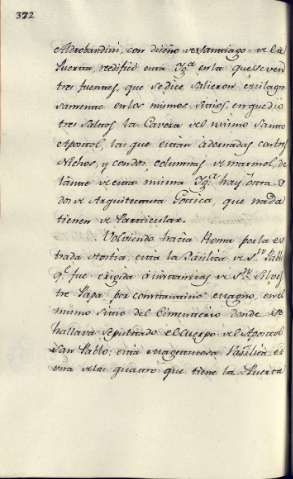 372
Aldrobandini, con diseño de Santiago de la
Puerta, redificó esta Yg.ª en la que se ven
tres fuentes, que se dice salieron milagro
samente en los mismos sitios, en que dio
tres saltos la Caveza del mismo Santo
Apostol, las que estan adornadas con tres
Nichos, y con dos columnas de marmol, de
lante de esta misma Yg.ª hay otra
dos de Arquitectura Gotica, que nada
tienen de Particular.
Volviendo hacia Roma por la es
trada Ostia, está la Basilica de S.n Pablo
q.e fue erigida á instancias de S.n Silves
tre Papa por Constantino magno, en el
mismo sitio del Cimenterio donde se
hallava sepultado el cuerpo del Apostol
San Pablo: esta magestuosa Basilica es
una de las quatro que tiene la Puerta